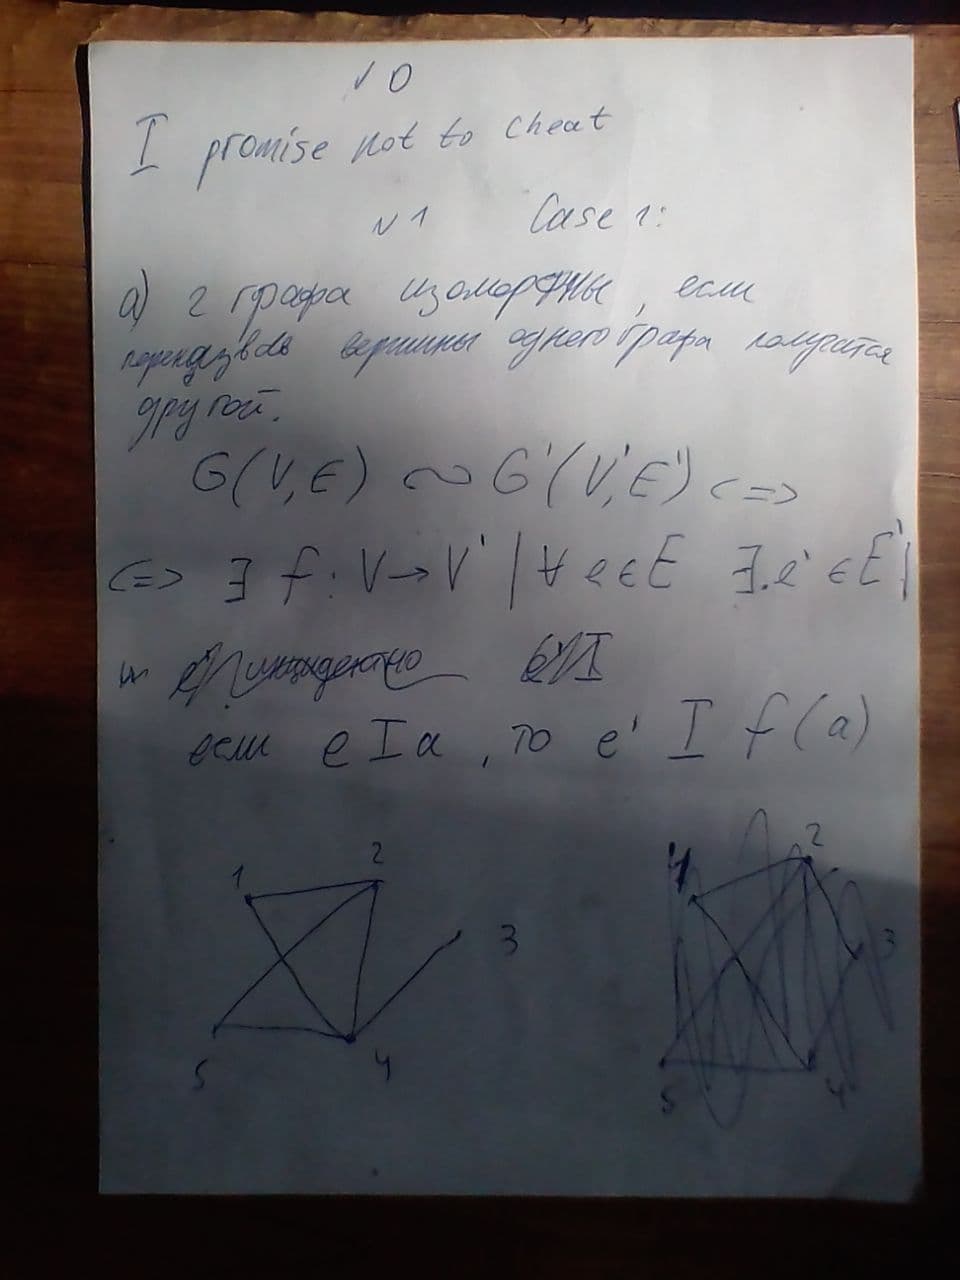 √ 0
I promise not to cheat
N 1 Case 1:
а) 2 графа изоморфны, если
вершины одного графа получится
другой.
G(V,E) ~ G'(V',E') <=>
<=> ∃ f: V→V' | ∀ e∈E ∃ e' ∈ E' |
если e I a, то e' I f(a)
1 2 3 4 5
2 3 4 5